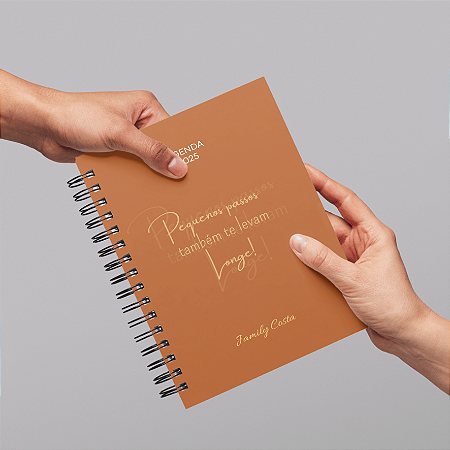 GENDA
2025
Pequenos passos
também te levam
Longe!
Family Costa